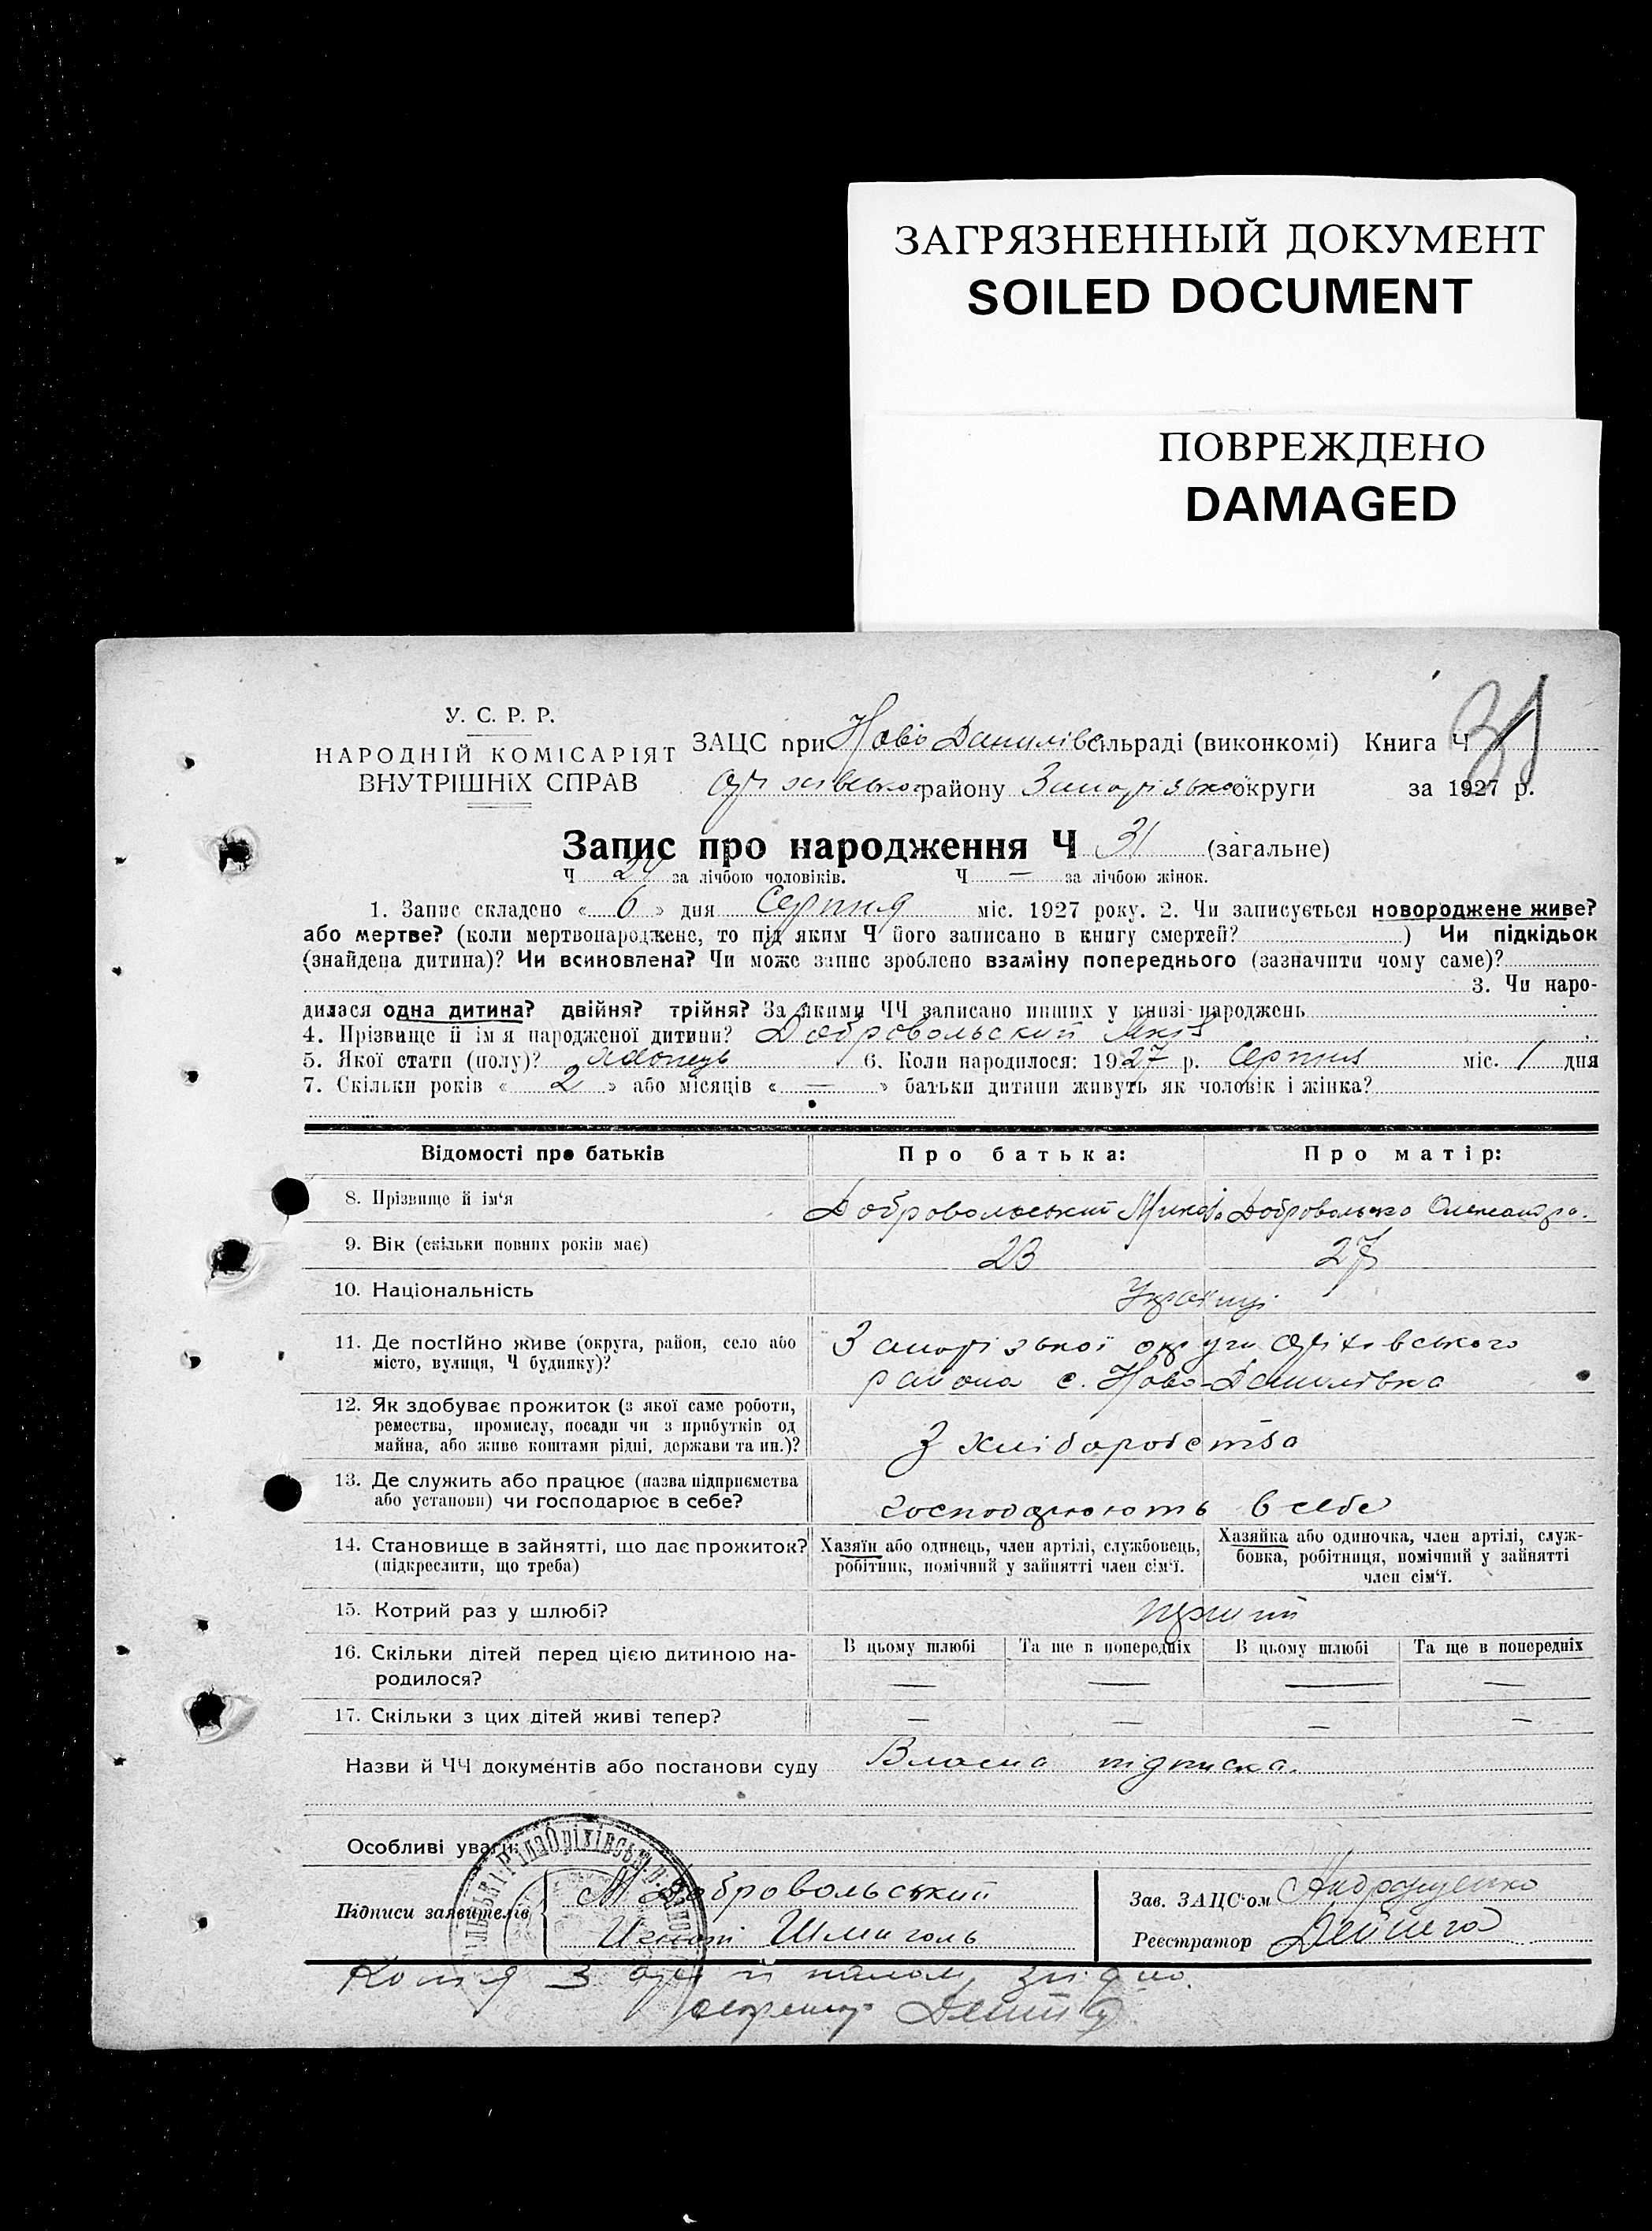 ЗАГРЯЗНЕННЫЙ ДОКУМЕНТ
SOILED DOCUMENT
ПОВРЕЖДЕНО
DAMAGED
31
У. С. Р. Р.
НАРОДНІЙ КОМІСАРІЯТ
ВНУТРІШНІХ СПРАВ
ЗАЦС при Ново Данилівс сільраді (виконкомі) Книга Ч
Оріхівського району Запорізької округи за 1927 р.
Запис про народження Ч 31 (загальне)
Ч 24 за лічбою чоловіків. Ч — за лічбою жінок.
1. Запис складено « 6 » дня Серпня міс. 1927 року. 2. Чи записується новороджене живе?
або мертве? (коли мертвонароджене, то під яким Ч його записано в книгу смертей? ) Чи підкідьок
(знайдена дитина)? Чи всиновлена? Чи може запис зроблено взаміну попереднього (зазначити чому саме)?
3. Чи наро-
дилася одна дитина? двійня? трійня? За якими ЧЧ записано инших у книзі народжень
4. Прізвище й ім'я народженої дитини? Добровольский
5. Якої стати (полу)? хлопець 6. Коли народилося: 1927 р. Серпня міс. 1 дня
7. Скільки років « 2 » або місяців « — » батьки дитини живуть як чоловік і жінка?
Відомості про батьків Про батька: Про матір:
8. Прізвище й ім'я Добровольський Микола Добровольська Олександра.
9. Вік (скільки повних років має) 23 27
10. Національність Українці
11. Де постійно живе (округа, район, село або
місто, вулиця, Ч будинку)?
Запорізької округи Оріхівського
района с. Ново-Данилівка
12. Як здобуває прожиток (з якої саме роботи,
ремества, промислу, посади чи з прибутків од
майна, або живе коштами рідні, держави та ин.)?
З хліборобства
13. Де служить або працює (назва підприємства
або установи) чи господарює в себе?
господарюють в себе
14. Становище в зайнятті, що дає прожиток?
(підкреслити, що треба)
Хазяїн або одинець, член артілі, службовець,
робітник, помічний у зайнятті член сім'ї.
Хазяйка або одиночка, член артілі, служ-
бовка, робітниця, помічний у зайнятті
член сім'ї.
15. Котрий раз у шлюбі? перший
16. Скільки дітей перед цією дитиною на-
родилося?
В цьому шлюбі Та ще в попередніх В цьому шлюбі Та ще в попередніх
— — — —
17. Скільки з цих дітей живі тепер? — — — —
Назви й ЧЧ документів або постанови суду Власна підписка.
Особливі уваги:
Підписи заявителів М Добровольський
Игнат Шмиголь
Зав. ЗАЦС'ом Андрущенко
Реєстратор
Копія з оригіналом згідно.
секретар